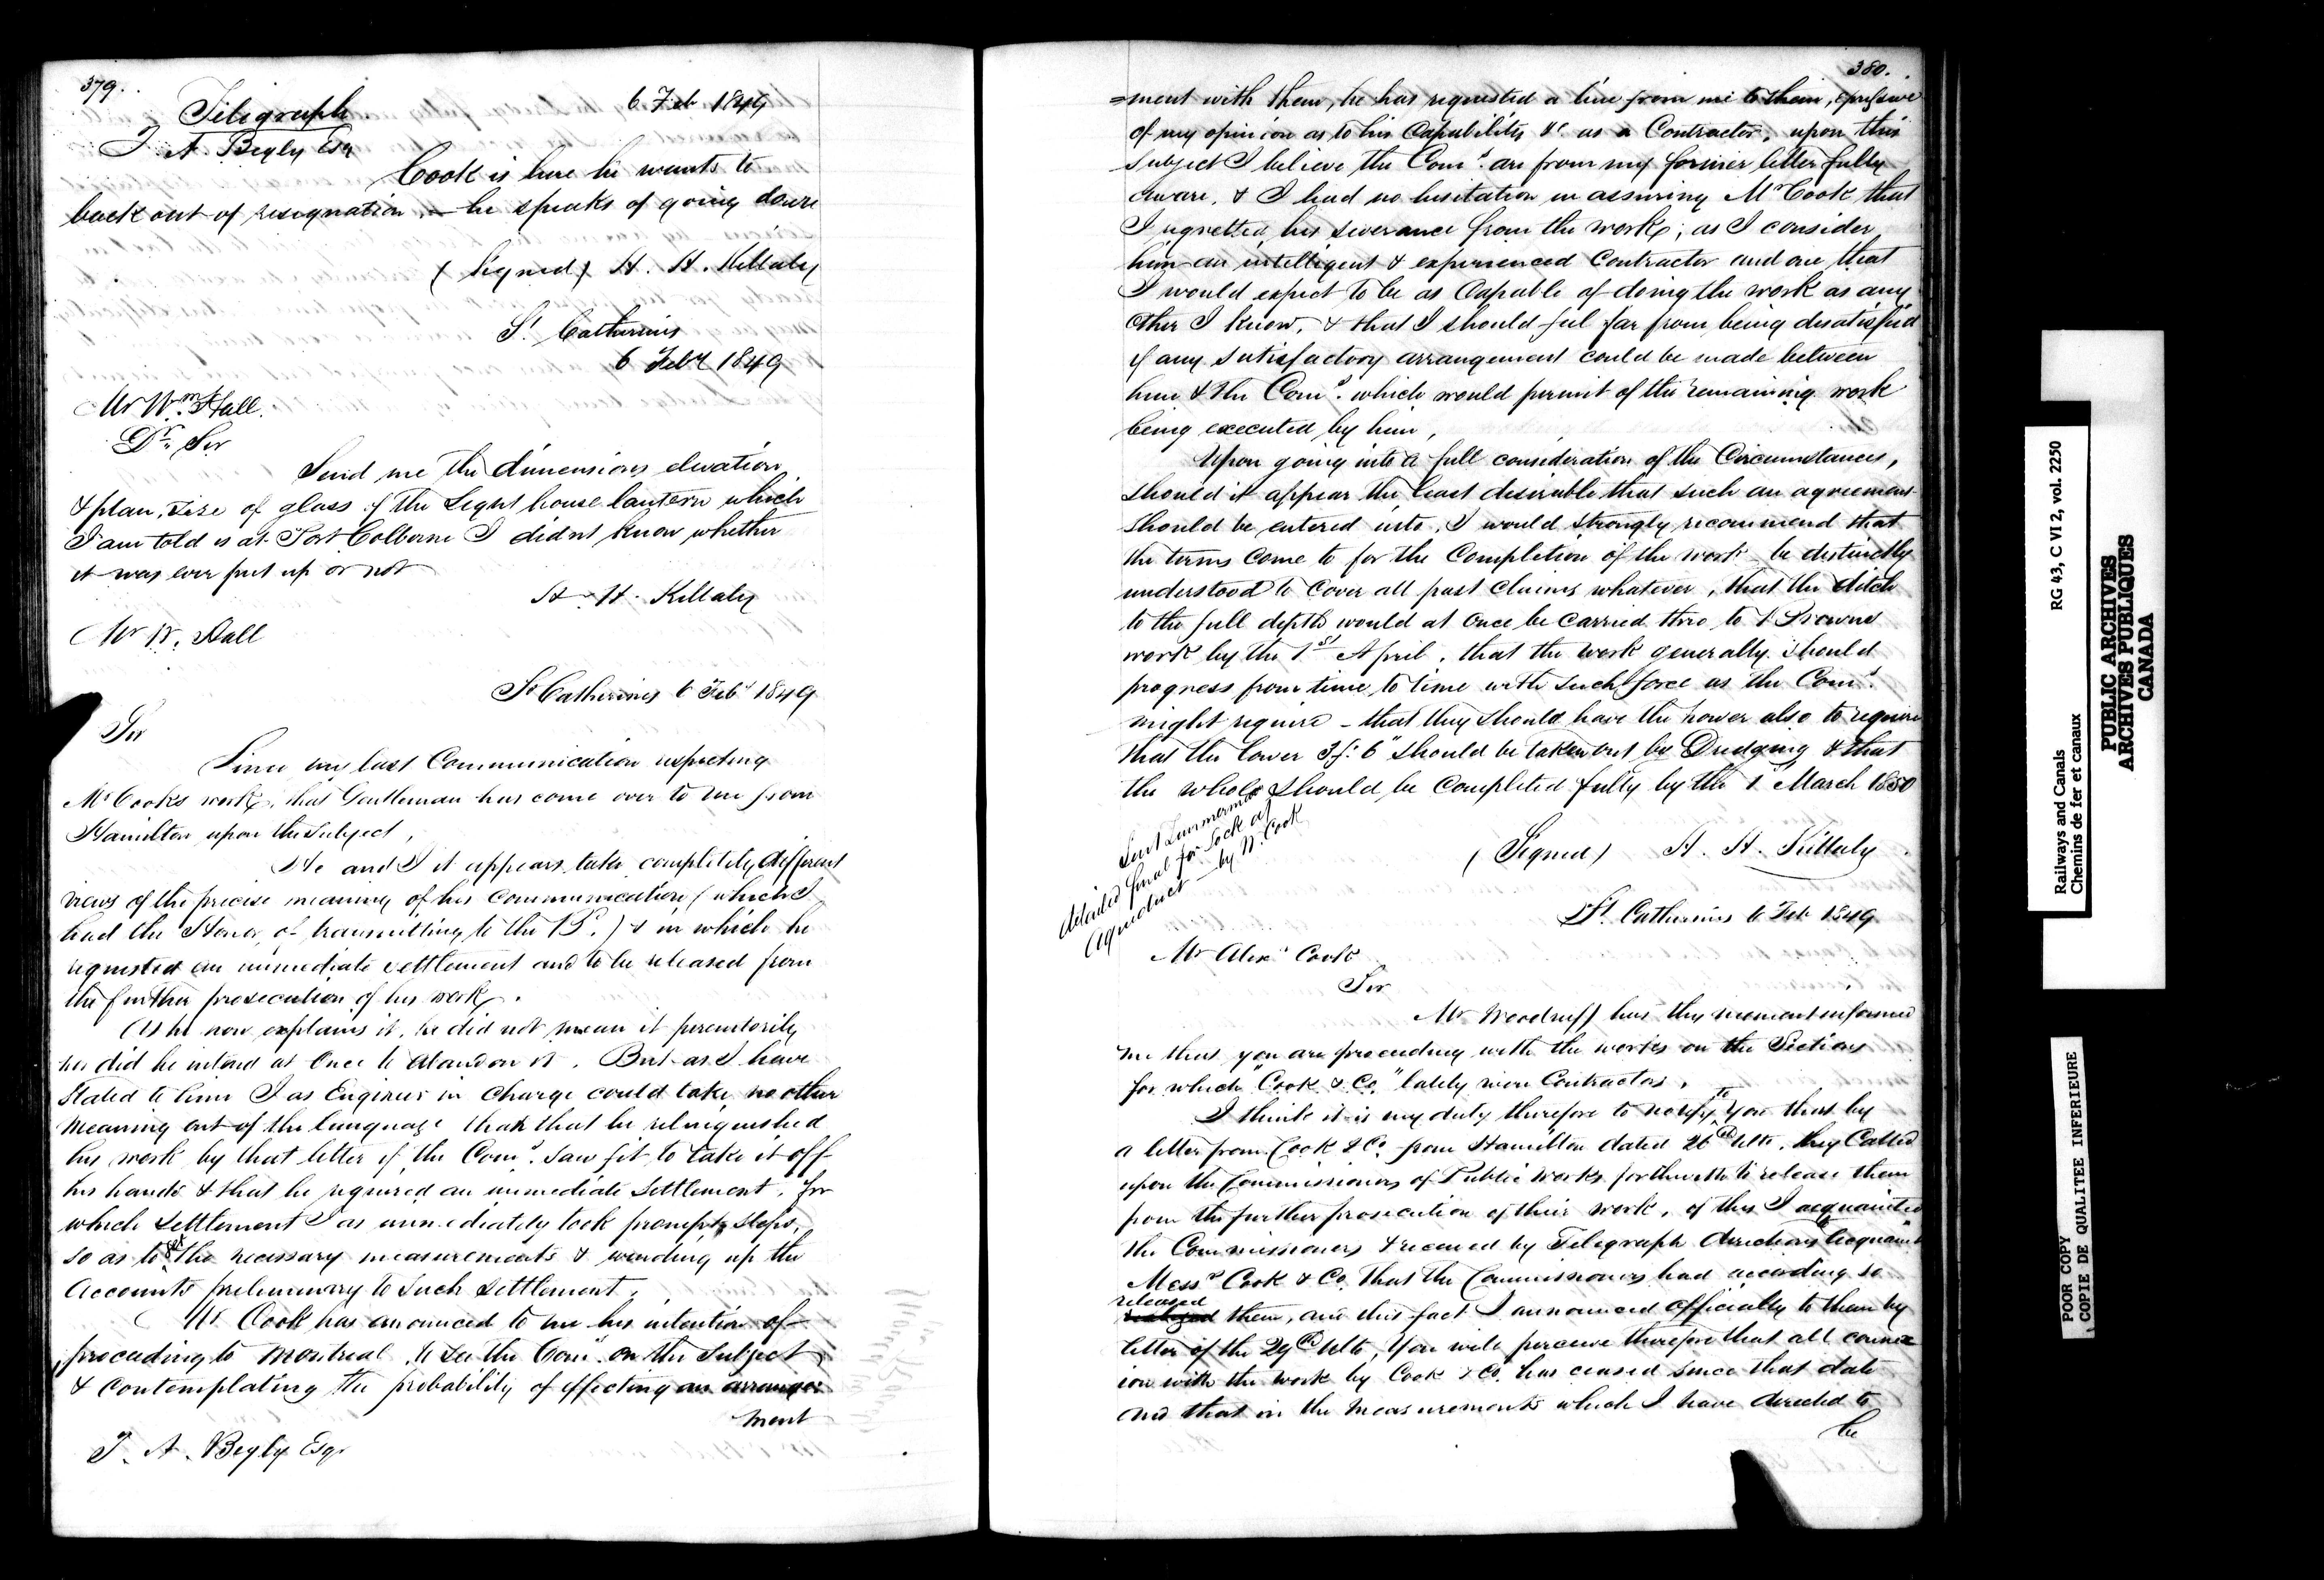 379.
Telegraph
6 Feb 1849
T. A. Begly Esqr
Cook is here he wants to
back out of resignation — he speaks of going down
(Signed) H. H. Killaly
St. Catherines
6 Feby 1849
Mr Wm. Hall.
Dr. Sir
Send me the dimensions elevation
& plan, size of glass of the Light house lantern which
I am told is at Port Colborne I didnt know whether
it was ever put up or not
H. H. Killaly
Mr W. Hall
St Catherines 6 Feby 1849
Sir
Since my last Communication respecting
Mr Cooks work, that Gentleman has come over to me from
Hamilton upon the subject,
He and I it appears take completely different
views of the precise meaning of his communication (which I
had the Honor of transmitting to the Bd.) & in which he
requested an immediate settlement and to be released from
the further prosecution of his work.
As he now explains it, he did not mean it peremtorily
nor did he intend at Once to abandon it. But as I have
Stated to him I as Engineer in charge could take no other
meaning out of the language than that he relinquished
his work by that letter if the Comrs. saw fit to take it off
his hands & that he required an immediate settlement, for
which settlement I as immediately took prompt steps,
so as to get the necessary measurements & winding up the
Accounts preliminary to such settlement.
Mr Cook has announced to me his intention of
proceeding to Montreal to see the Comrs. on the subject
& contemplating the probability of effecting an arrange=
ment
T. A. Begly Esqr
380.
=ment with them, he has requested a line from me to them, expressive
of my opinion as to his Capability &c as a Contractor, upon this
subject I believe the Comrs. are from my former letter fully
aware, & I had no hesitation in assuring Mr Cook that
I regretted his severance from the work; as I consider
him an intelligent & experienced Contractor and one that
I would expect to be as Capable of doing the work as any
other I know, & that I should feel far from being disatisfied
if any satisfactory arrangement could be made between
him & the Comrs. which would permit of the remaining work
being executed by him,
Upon going into a full consideration of the Circumstances,
should it appear the least desirable that such an agreement
should be entered into, I would strongly recommend that
the terms come to for the Completion of the work be distinctly
understood to cover all past claims whatever, that the ditch
to the full depth would at once be carried thro to Browns
work by the 1st April, that the work generally should
progress from time to time with such force as the Comrs.
might require – that they should have the power also to require
that the lower 3f: 6" should be taken out by Dredging & that
the whole should be completed fully by the 1 March 1850
(Signed) H. H. Killaly
Sent Zimmerman
detailed final for Lock at
Aqueduct — by W. Cook
St. Catherines 6 Feb 1849
Mr Alexr Cook
Sir
Mr Woodruff has this moment informed
me that you are proceeding with the works on the Sections
for which "Cook & Co." lately were Contractors.
I think it is my duty therefore to notify to you that by
a letter from Cook & Co. from Hamilton dated 26th Ulto. they Called
upon the Commissioners of Public works forthwith to release them
from the further prosecution of their work, of this I acquainted
the Commissioners & received by Telegraph directions to acquaint
Messrs Cook & Co. that the Commissioners had according so
released
them, and this fact I announced officially to them by
letter of the 29th Ulto, You will perceive therefore that all connex
ion with the work by Cook & Co. has ceased since that date
and that in the measurements which I have directed to
be
Railways and Canals
Chemins de fer et canaux
RG 43, C VI 2, vol. 2250
PUBLIC ARCHIVES
ARCHIVES PUBLIQUES
CANADA
POOR COPY
COPIE DE QUALITEE INFERIEURE